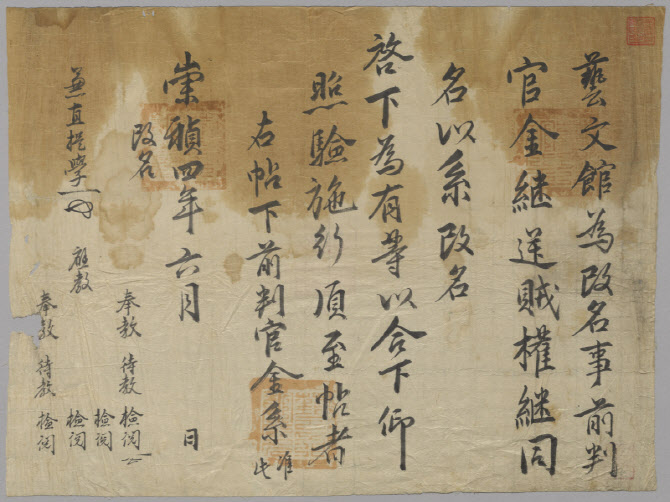 藝文館為改名事前判
官金継送賊權継同
名以系改名
啓下為有等以合下仰
照驗施行須至帖者
右帖下前判官金系 准此
崇禎四年六月 日
改名
兼直提學
應教
奉教 待教 檢閱
檢閱
檢閱
奉教 待教 檢閱